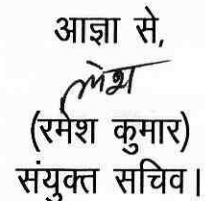 आज्ञा से,
(रमेश कुमार)
संयुक्त सचिव।